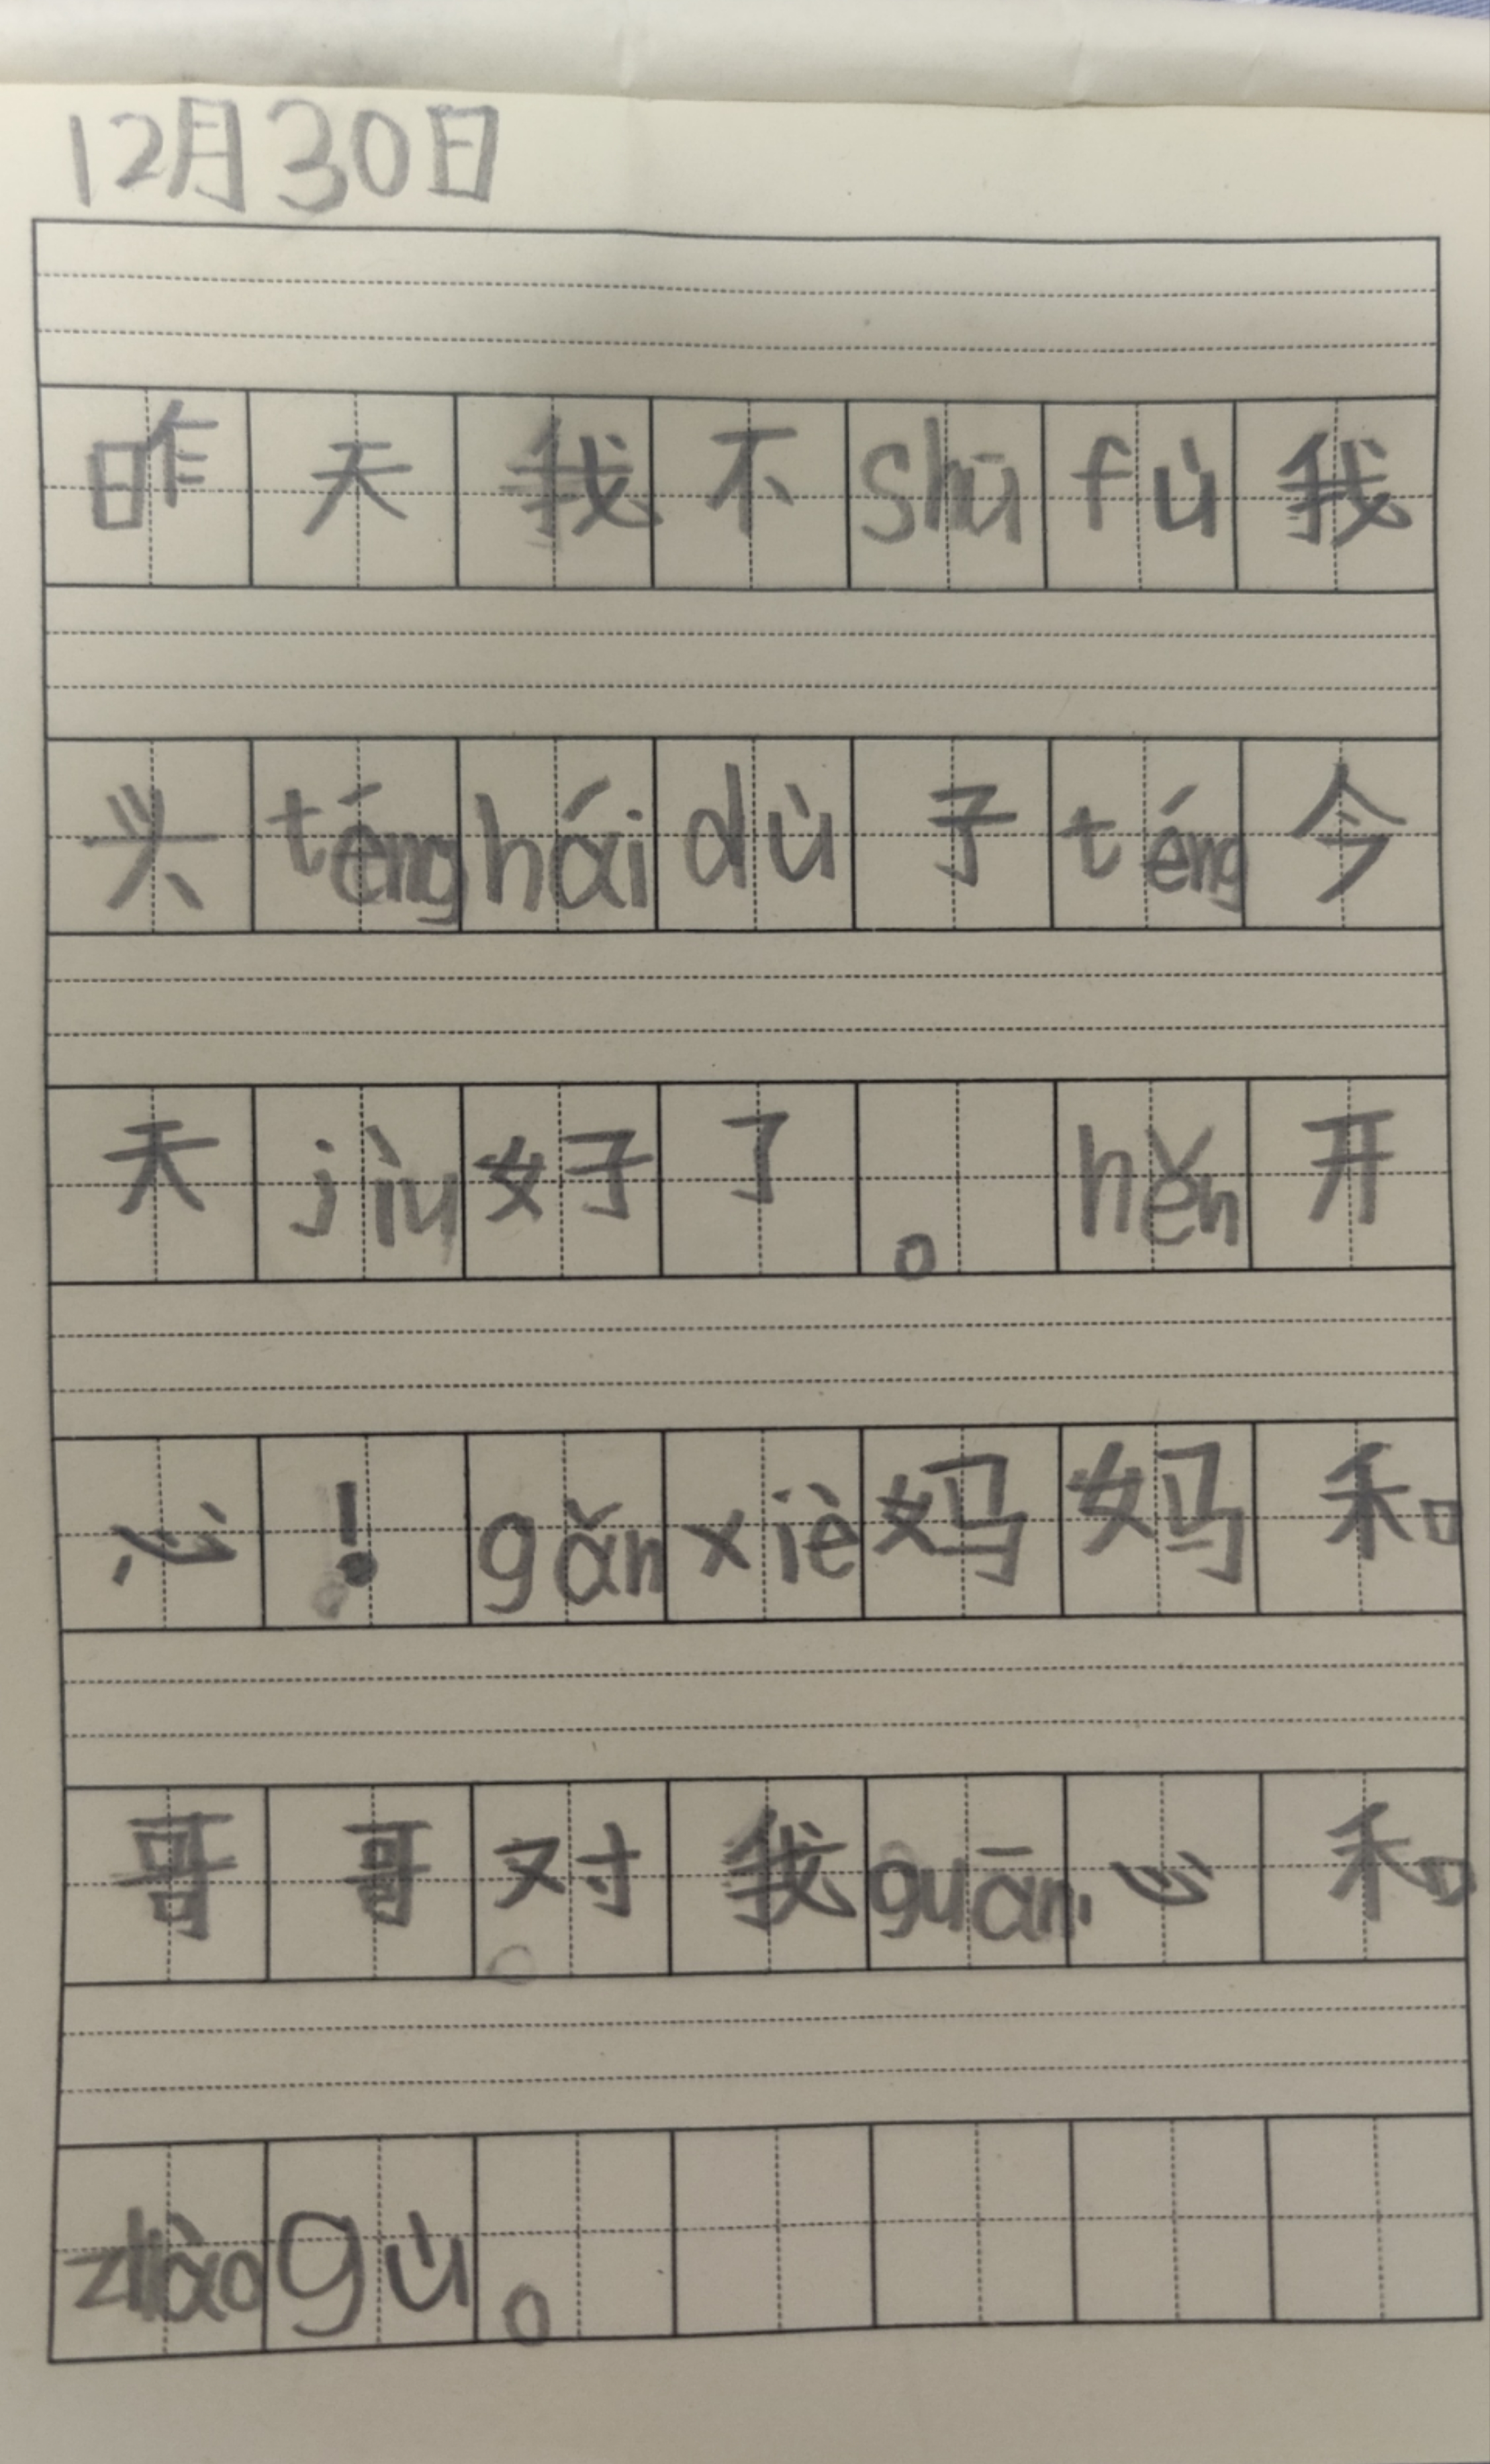 12月30日
昨天我不shūfù我
头ténghái dù子téng今
天jiù好了。hěn开
心！gǎnxiè妈妈和
哥哥对我guān心和
zhàogù。